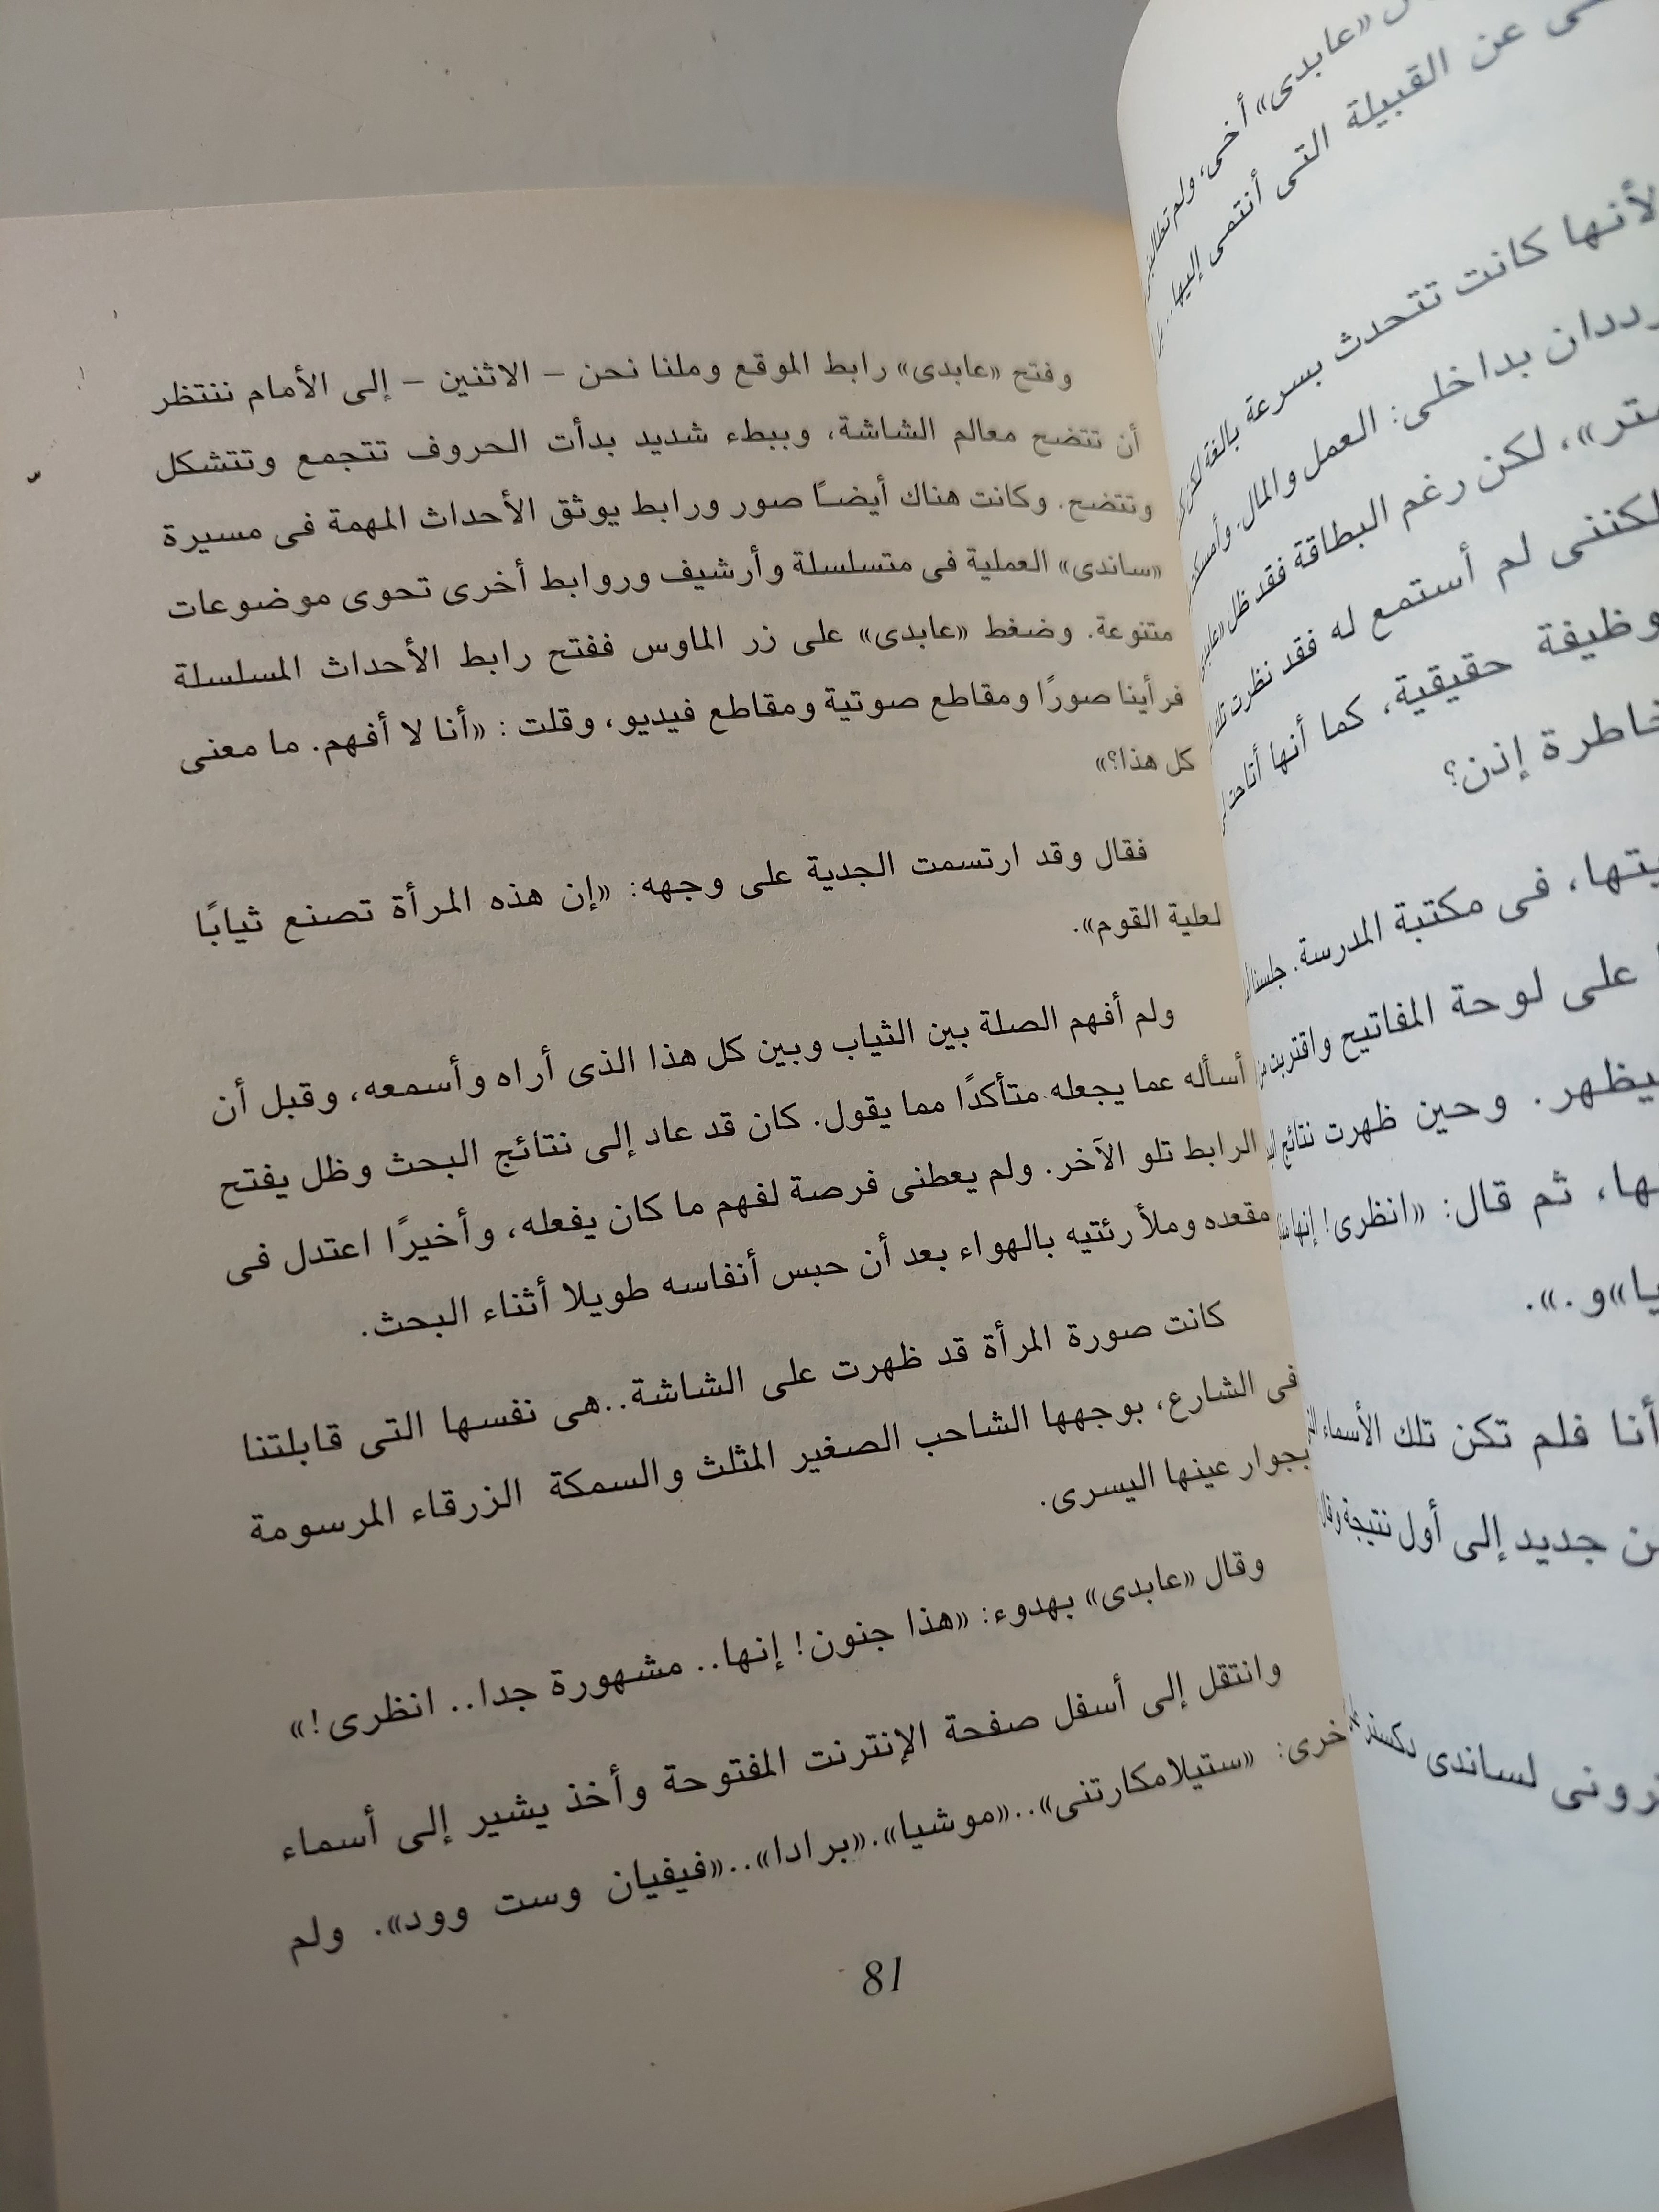 وفتح «عابدى» رابط الموقع وملنا نحن – الاثنين – إلى الأمام ننتظر
أن تتضح معالم الشاشة، وببطء شديد بدأت الحروف تتجمع وتتشكل
وتتضح. وكانت هناك أيضًا صور ورابط يوثق الأحداث المهمة فى مسيرة
«ساندى» العملية فى متسلسلة وأرشيف وروابط أخرى تحوى موضوعات
متنوعة. وضغط «عابدى» على زر الماوس ففتح رابط الأحداث المسلسلة
فرأينا صورًا ومقاطع صوتية ومقاطع فيديو، وقلت: «أنا لا أفهم. ما معنى
كل هذا؟»
فقال وقد ارتسمت الجدية على وجهه: «إن هذه المرأة تصنع ثيابًا
لعلية القوم».
ولم أفهم الصلة بين الثياب وبين كل هذا الذى أراه وأسمعه، وقبل أن
أسأله عما يجعله متأكدًا مما يقول. كان قد عاد إلى نتائج البحث وظل يفتح
الرابط تلو الآخر. ولم يعطنى فرصة لفهم ما كان يفعله، وأخيرًا اعتدل فى
مقعده وملأ رئتيه بالهواء بعد أن حبس أنفاسه طويلا أثناء البحث.
كانت صورة المرأة قد ظهرت على الشاشة..هى نفسها التى قابلتنا
فى الشارع، بوجهها الشاحب الصغير المثلث والسمكة الزرقاء المرسومة
بجوار عينها اليسرى.
وقال «عابدى» بهدوء: «هذا جنون! إنها.. مشهورة جدا.. انظرى!»
وانتقل إلى أسفل صفحة الإنترنت المفتوحة وأخذ يشير إلى أسماء
أخرى: «ستيلامكارتنى»..«موشيا».«برادا»..«فيفيان وست وود». ولم
81
«عابدى» أخى، ولم
عن القبيلة التى أنتمى إليها..
لأنها كانت تتحدث بسرعة بالغة
بداخلى: العمل والمال.
لكن رغم البطاقة فقد ظل
لم أستمع له فقد نظرت
وظيفة حقيقية، كما أنها
إذن؟
فى مكتبة المدرسة.
على لوحة المفاتيح واقتربت
وحين ظهرت نتائج
ثم قال: «انظرى! إنها
و.».
أنا فلم تكن تلك الأسماء
جديد إلى أول نتيجة
لساندى